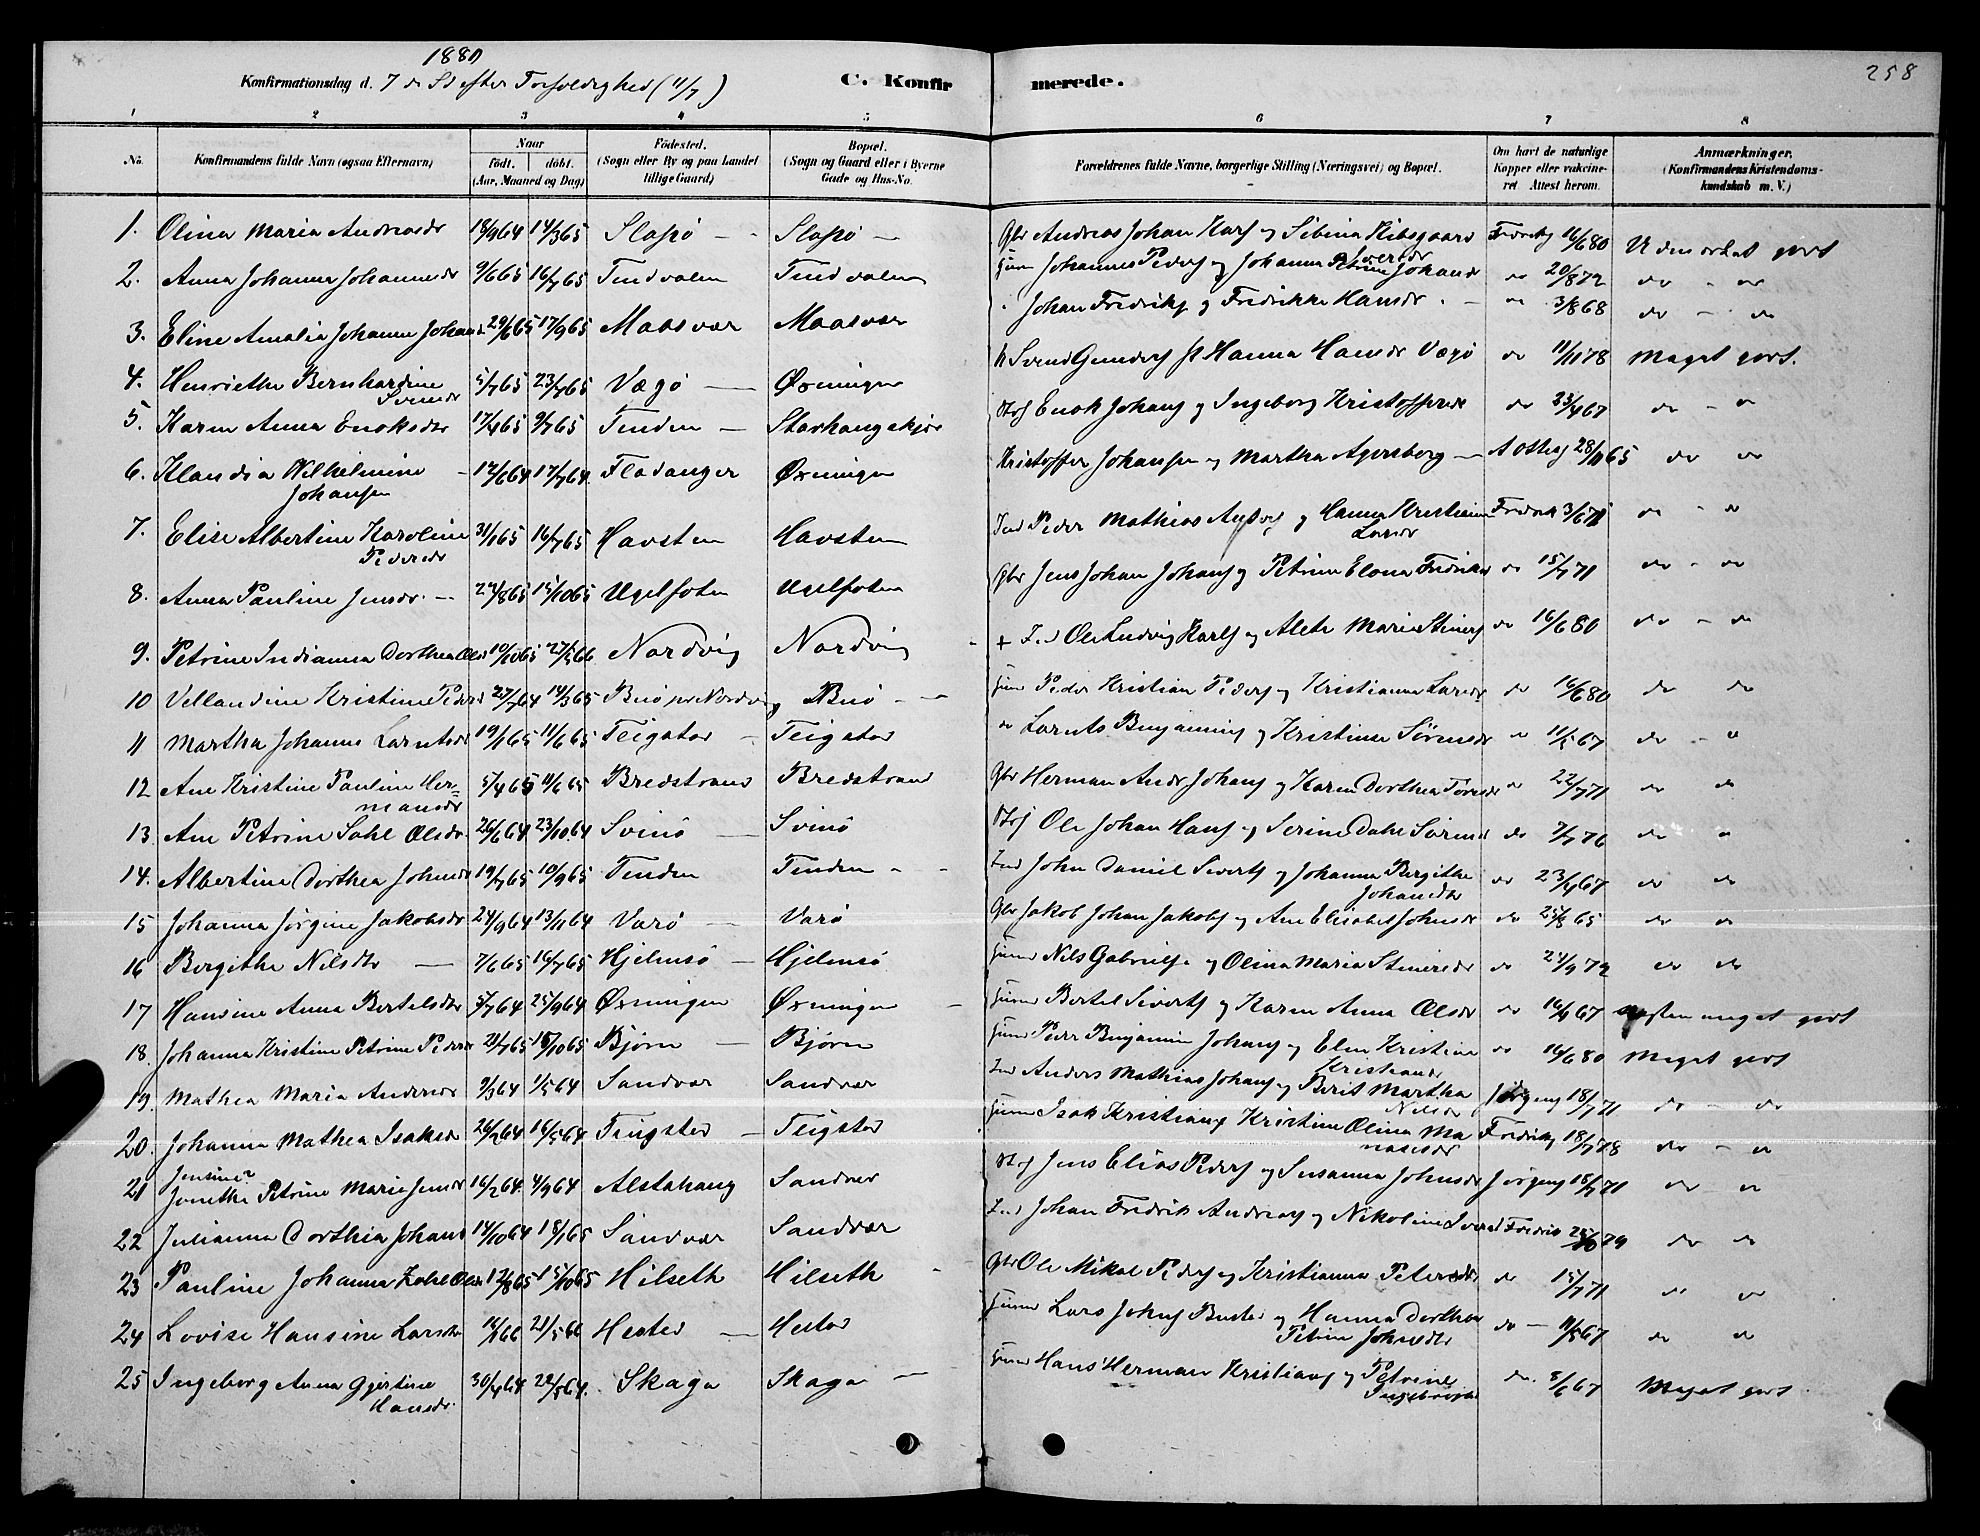 1880
258
Konfirmationsdag d. 7 de S efter Trefoldighed (11/7) C. Konfirmerede.
1 2 3 4 5 6 7 8
No. Konfirmandens fulde Navn (ogsaa Efternavn) Naar födt. döbt. (Aar, Maaned og Dag) Födested. (Sogn eller By og paa Landet tillige Gaard) Bopæl. (Sogn og Gaard eller i Byerne Gade og Hus-No. Forældrenes fulde Navne, borgerlige Stilling (Næringsvei) og Bopæl. Om havt de naturlige Kopper eller vakcineret. Attest herom. Anmærkninger. (Konfirmandens Kristendomskundskab m. V.)
1. Olina Maria Andreasdr 18/9 64 14/3 65 Slapø Slapø Gbr Andreas Johan Karls og Sibina Kibsgaard Fredriks 16/6 80 Udmærket godt
2. Anna Johanna Johannesdr 9/6 65 16/7 65 Tindvalen Tindvalen Johannes Peders og Johanna Petrine Johansdr do 20/8 72 do - do
3. Eline Amalia Johanna Johansd 29/6 65 17/9 65 Maasvær Maasvær Johan Fredriks og Fredrikke Hansdr do 3/8 68 do - do
4. Henriette Bernhardine Svendsdr 5/7 65 23/7 65 Vægø Øxningen Svend Gunders Hanna Hansdr Vægø do 11/11 78 Meget godt.
5. Karen Anna Enoksdtr 17/4 65 9/7 65 Tinden Enok Johans og Ingeborg Kristoffersd do 23/4 67 do - do
6. Klaudia Wilhelmine Johansen 12/6 64 17/7 64 Fladanger Øxningen Kristoffer Johansen og Martha Agersborg A Othes 28/11 65 do do
7. Elise Albertine Karoline Pedersdr 31/1 65 16/7 65 Havsten Havsten Ind Peder Mathias og Hanna Kristina Larsdr Fredrik 3/6 71 do - do
8. Anna Pauline Jensdr. 24/8 65 15/10 65 Ugelfoten Ugelfoten Gbr Jens Johan Johans og Petrine Elena Fredriksd do 15/7 71 do - do
9. Petrine Indianna Dorthea Olsd 10/10 65 27/5 66 Nordvig Nordvig + Ind Ole Ludvig Karls og Alete Maria Steners do 16/6 80 do - do
10 Vellandine Kristine Pedersd 27/7 64 19/3 65 Buø pr Nordvig Buø Peder Kristian Peders og Kristianna Larsdr do 16/6 80 do do
11 Martha Johanna Larntsdr 19/1 65 11/6 65 Teigstad Teigstad do Larnts Benjamins og Kristense Sørensdr do 11/5 67 do - do
12 Ane Kristine Pauline Hermansdr 5/4 65 11/6 65 Bredstrand Bredstrand Gbr Herman Andr Johans og Karen Dorthea Toresdr do 22/7 71 do do
13 Ane Petrine Dahl Olsdr 26/6 64 23/10 64 Svinø Svinø Ole Johan Hans og Serine Dahl Sørensd do 7/7 76 do do
14. Albertine Dorthea Johnsdr 19/7 65 10/9 65 Tinden Tinden Ind John Daniel Siverts og Johanna Bergithe Johansdtr do 23/4 67 do do
15 Johanna Jørgine Jakobsdr 24/9 64 13/11 64 Varø Varø Gbr Jakob Johan Jakobs og Ane Elisabet Johnsdr do 25/8 65 do do
16 Bergithe Nilsdtr 7/6 65 16/7 65 Hjelmsø Hjelmsø Nils Gabriels og Olina Maria Steinersdr do 24/9 72 do do
17 Hansine Anna Bertelsdtr 5/7 64 25/9 64 Øxningen Øxningen Bertel Siverts og Karen Anna Olsdr do 16/4 67 næsten meget godt
18. Johanna Kristine Petrine Pedersd 21/7 65 15/10 65 Bjørn Bjørn Peder Benjamin Johans og Elen Kristina Kristiansdr do 16/6 80 Meget godt
19. Mathea Maria Andersdr 9/3 64 1/5 64 Sandvær Sandvær Ind Anders Mathias Johans og Berit Martha Nilsdr Jørgens 18/7 71 do - do
20. Johanna Mathea Isaksdr 26/2 64 16/5 64 Teigstad Teigstad Isak Kristians Kristine Olina Manasesdr Fredriks 18/7 78 do - do
21 Jensine? Jonetha Petrine Marie Jensdr 16/2 64 4/9 64 Alstahaug Sandvær Jens Elias Peders og Susanna Johnsdr Jørgens 18/7 71 do - do
22 Julianna Dorthea Johansd 14/10 64 18/1 65 Sandvær Sandvær Ind Johan Fredrik Andreas og Nikoline Iversd Fredriks 79 do do
23 Pauline Johanna Zahl Olsd 12/8 65 15/10 65 Hilseth Hilseth Gbr Ole Mikal Peders og Kristianna Petersdtr do 15/7 71 do do
24 Lovise Hansine Larsdtr 14/1 66 21/5 66 Hestad Hestad Lars Johns og Hanna Dorthea Petrine Johnsdtr do 11/5 67 do do
25 Ingeborg Anna Gjertine Hansdr. 30/4 64 22/5 64 Skaga Skaga Hans Herman Kristians og Petrine Ingebrigtsd do. 8/6 67 Meget godt